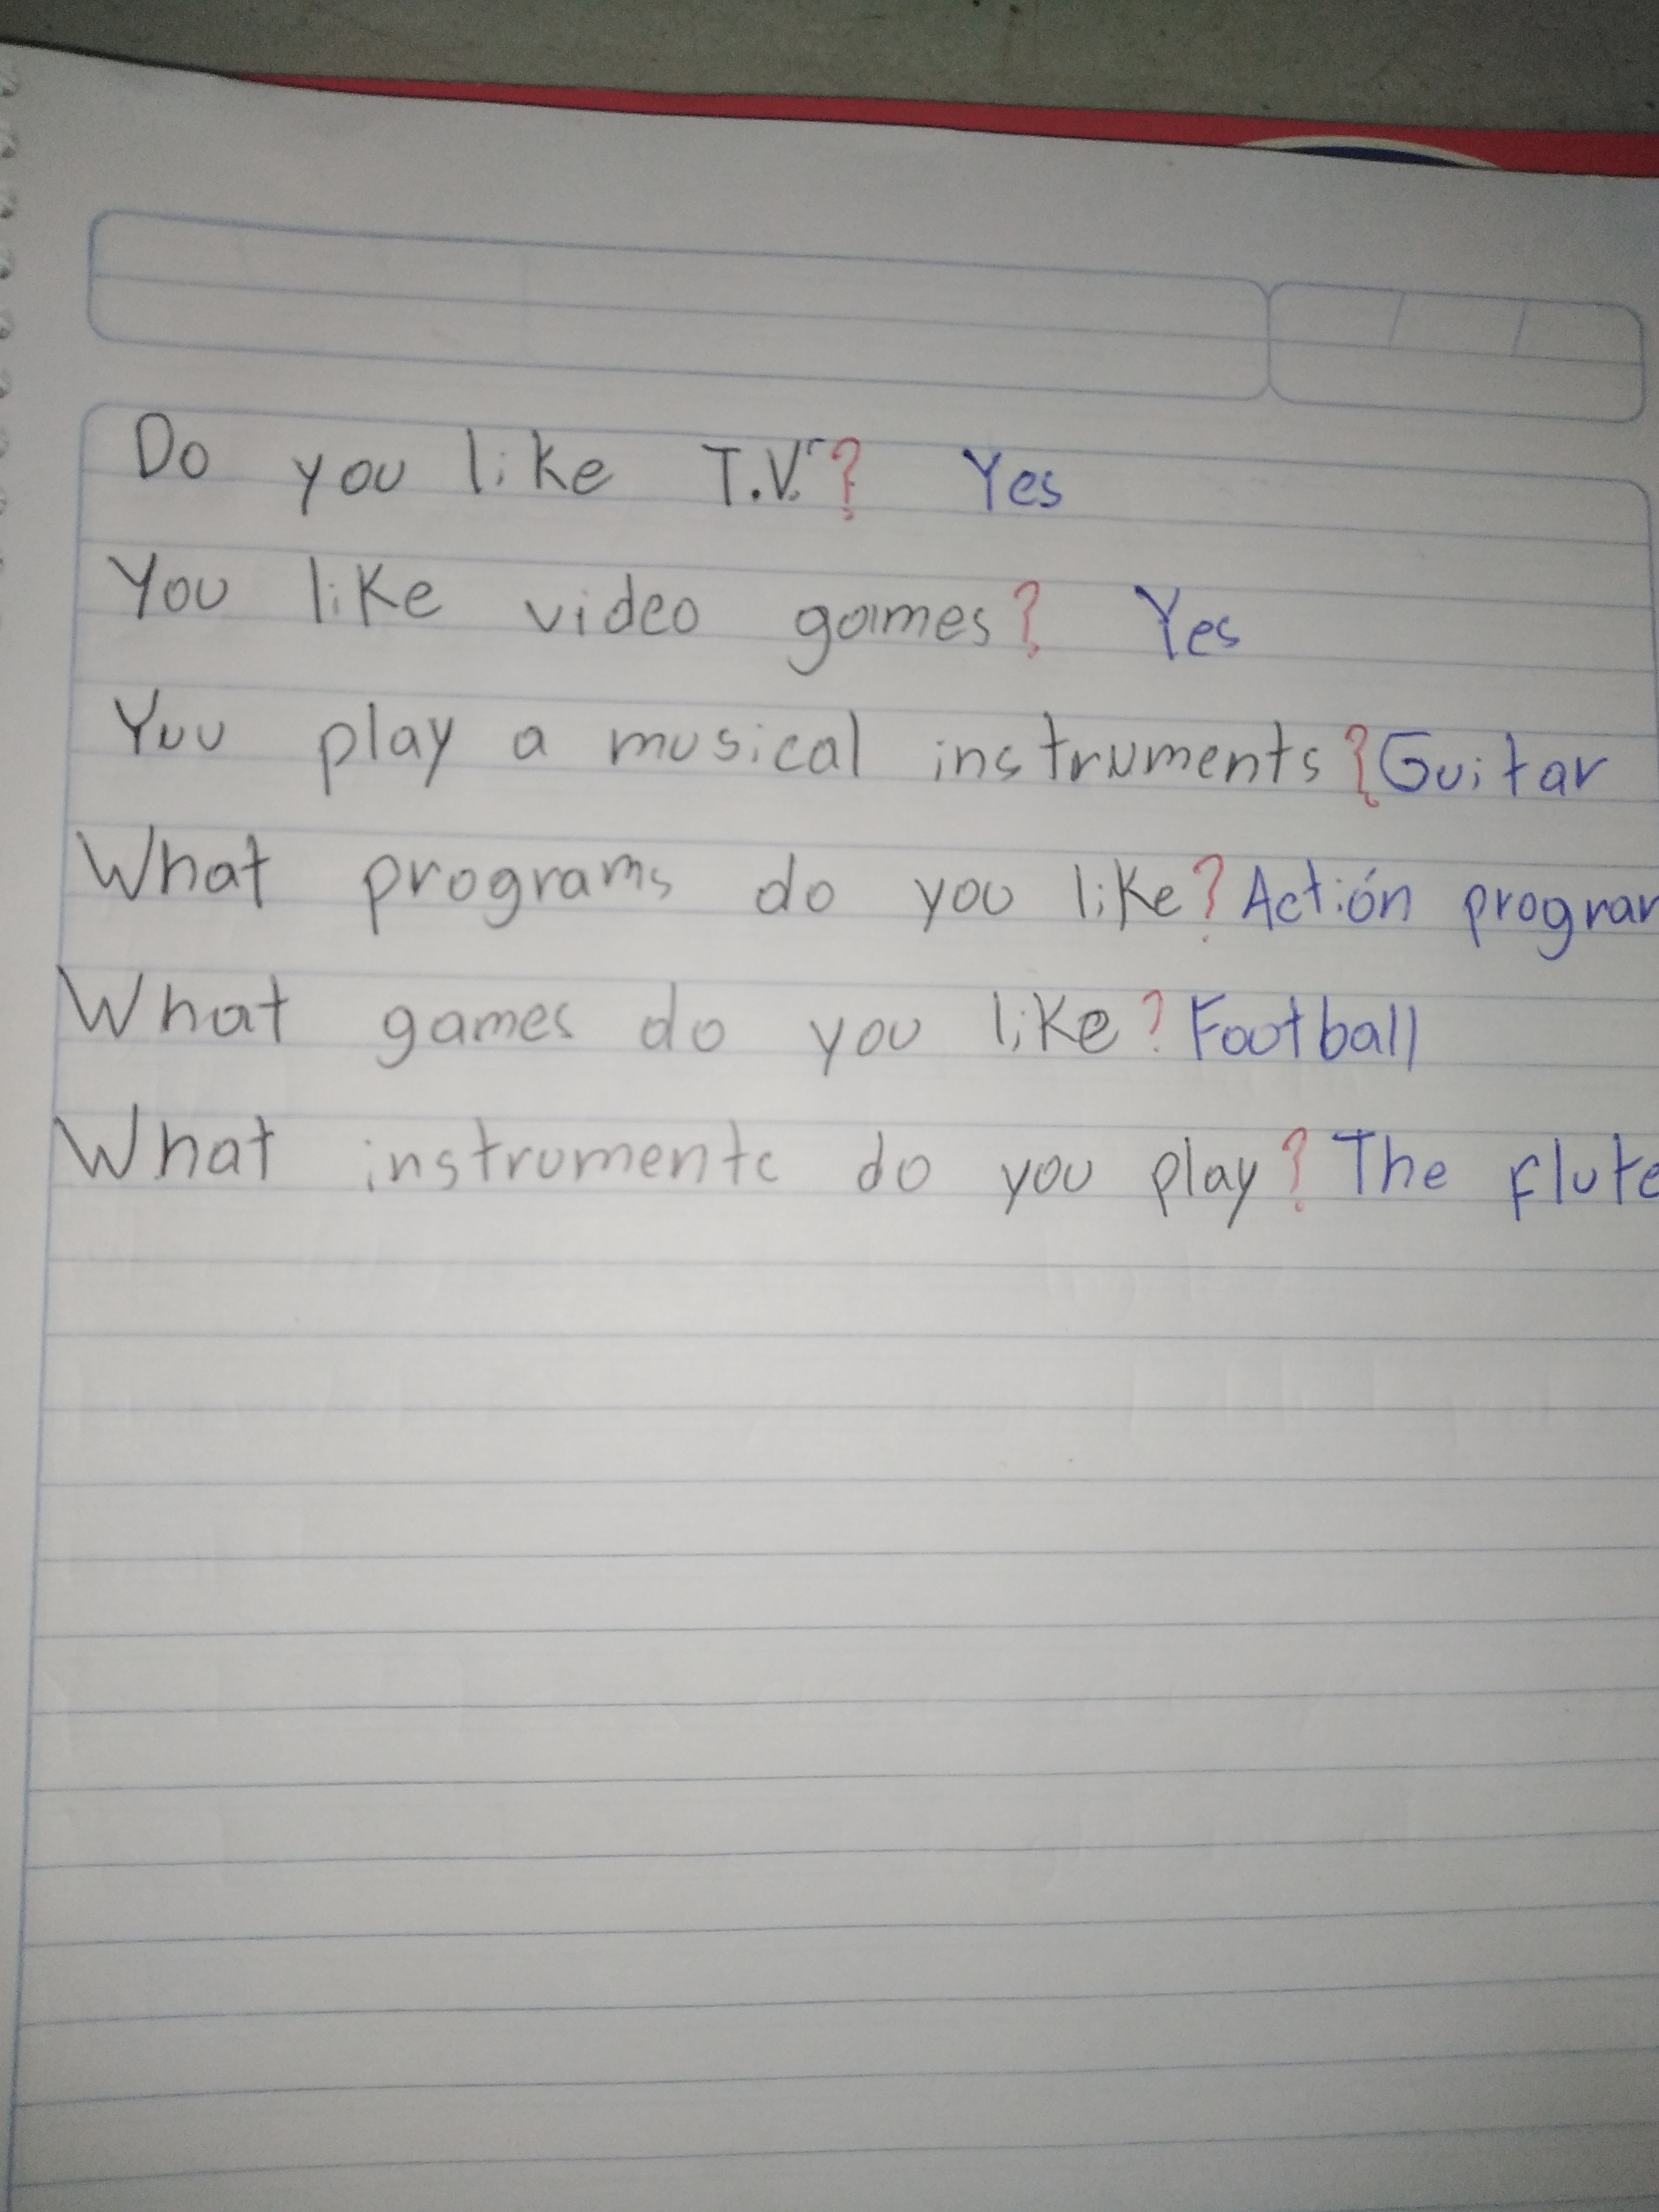 Do you like T.V.? Yes
You like video games? Yes
You play a musical instruments? Guitar
What programs do you like? Actión program
What games do you like? Football
What instruments do you play? The flute